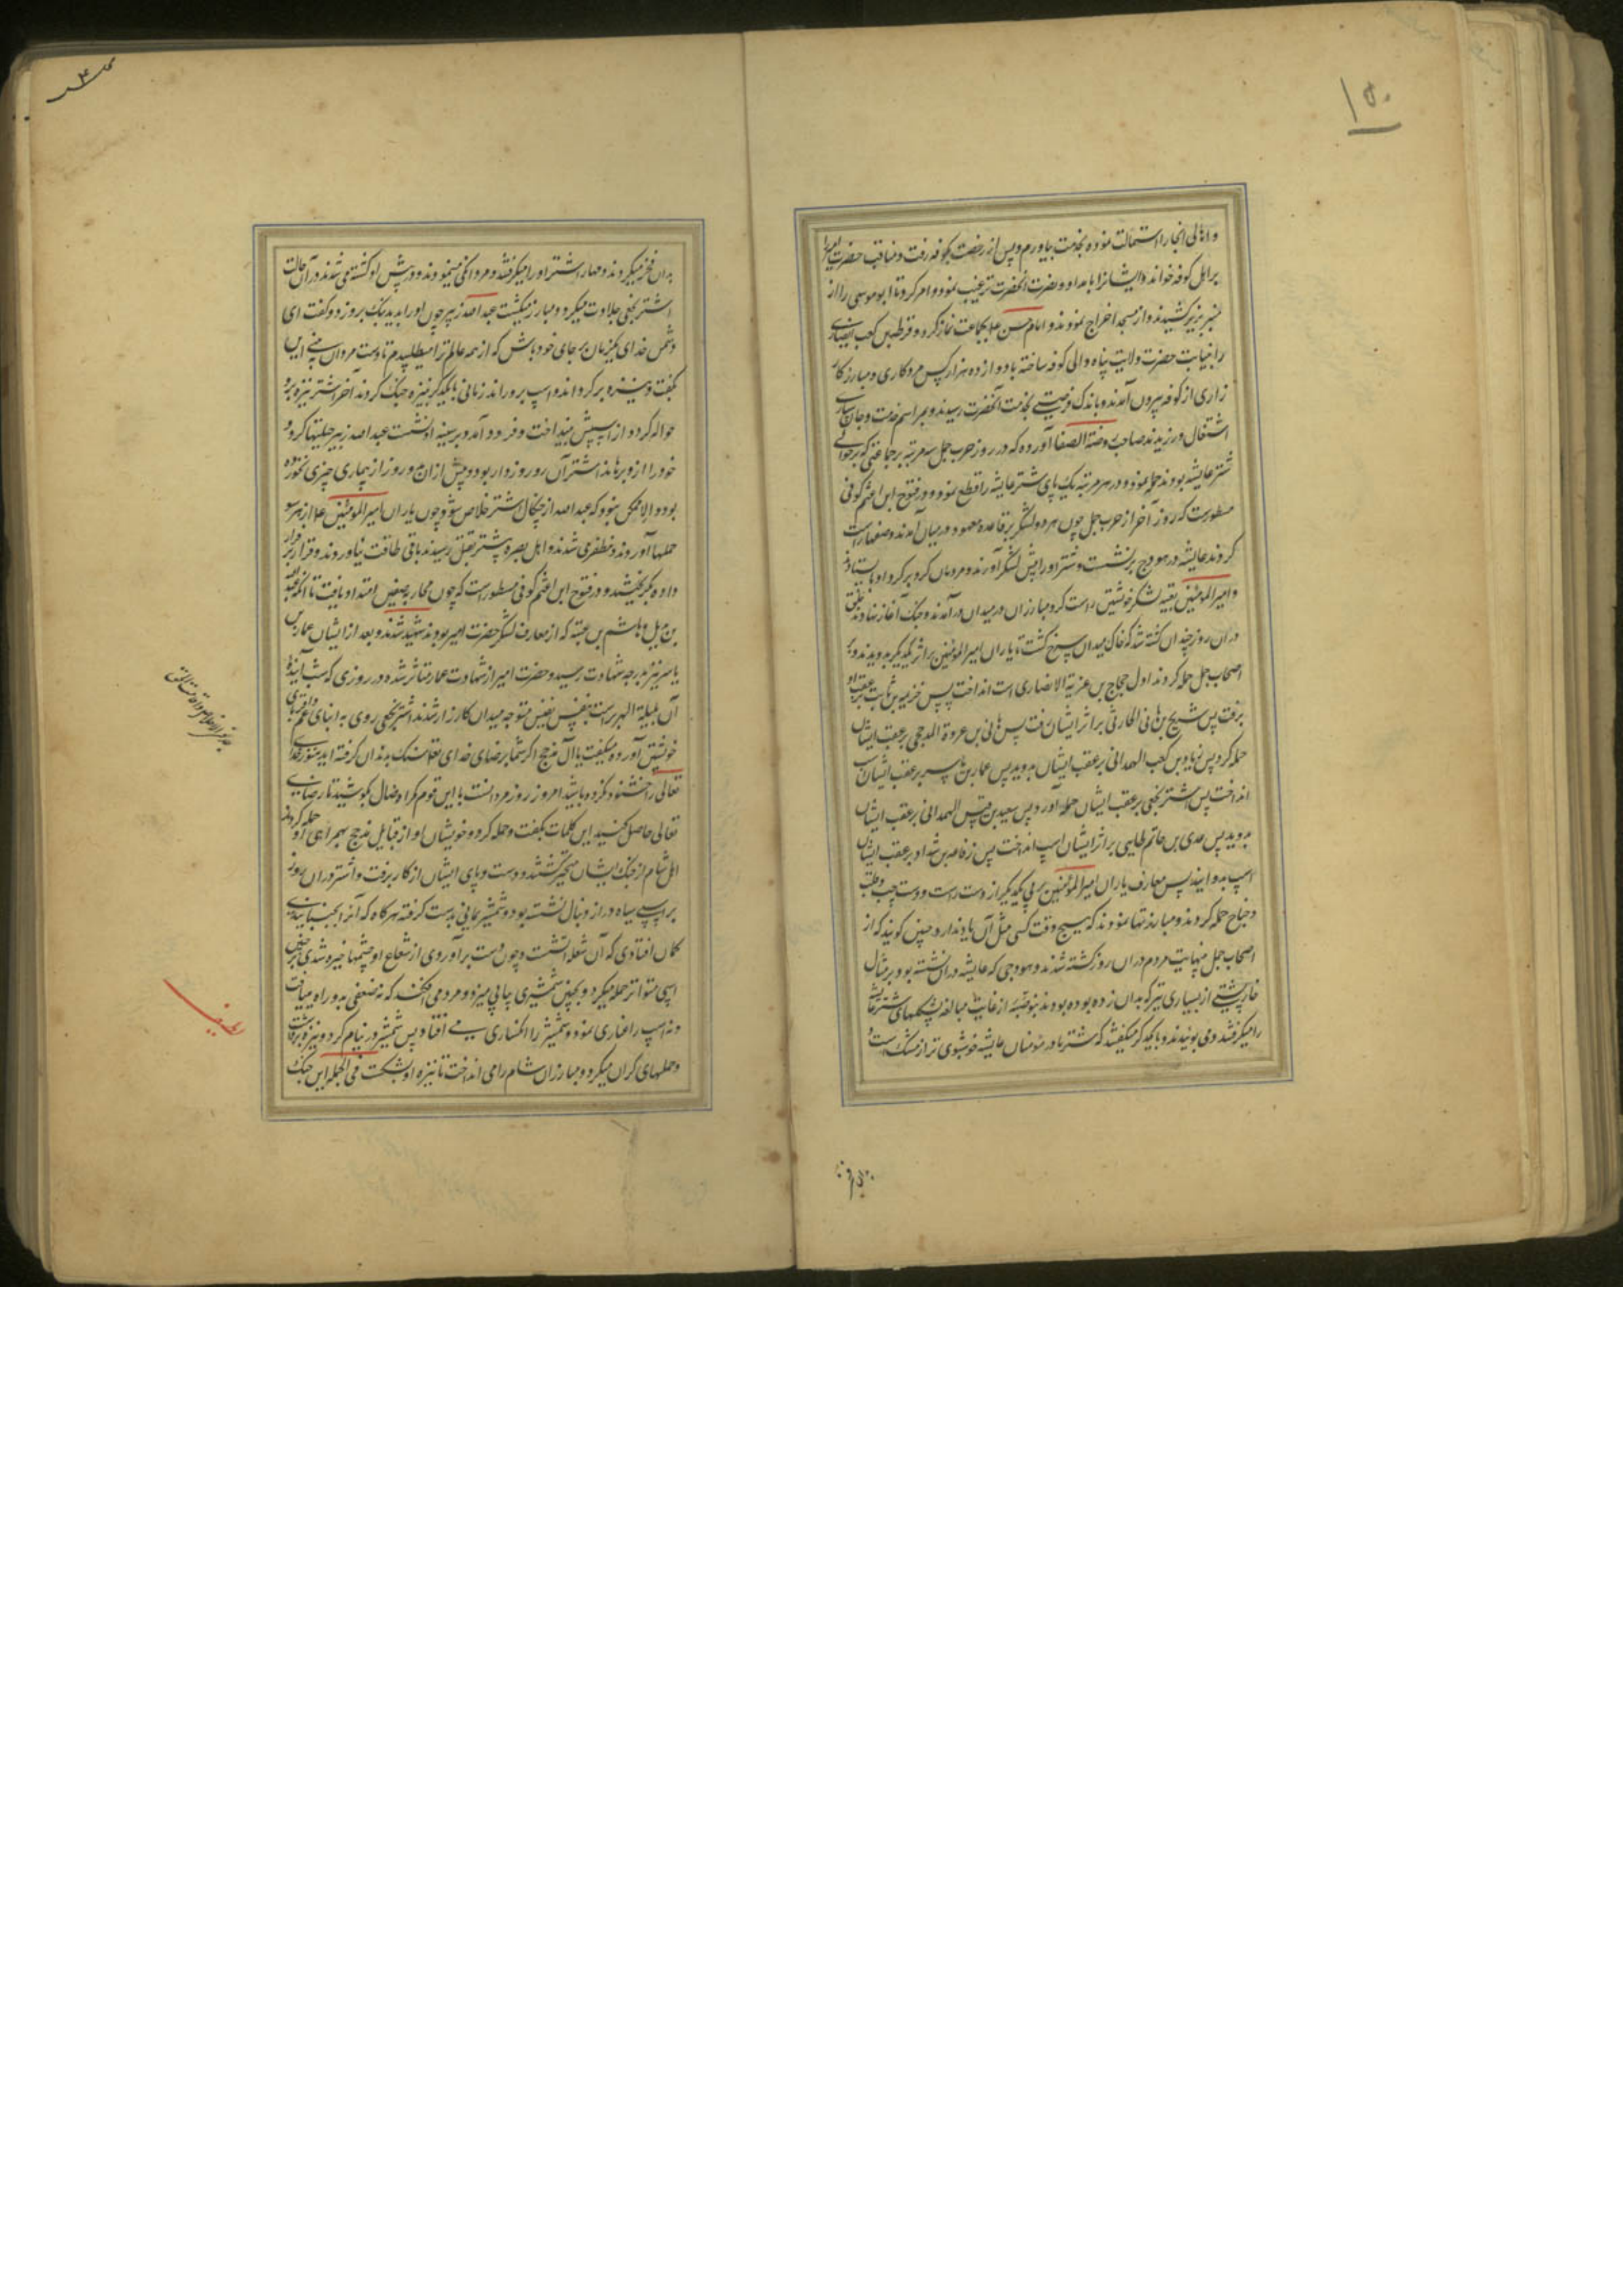 ۱۵۰
و اهالی آنجا را استمالت نموده بخدمت بیاورم و پس از رخصت بکوفه رفت و مناقب حضرت امیر را
بر اهل کوفه خوانده ایشانرا بامداد و نصرت آنحضرت ترغیب نمود و امر کرد تا ابو موسی را از
منبر بزیر کشیدند و از مسجد اخراج نمودند و امام حسن ع بجماعت نماز کرد و قرظة بن کعب انصاری
را بنیابت حضرت ولایت پناه والی کوفه ساخته با دوازده هزار کس مرد کاری و مبارز کار
زاری از کوفه بیرون آمدند و باندک فرصتی بخدمت آنحضرت رسیدند و بمراسم خدمت و جان سپاری
اشتغال ورزیدند صاحب روضة الصفا آورده که در روز حرب جمل سه مرتبه بر جماعتی که بر حوالی
شتر عایشه بودند حمله نمود و در هر مرتبه یک پای شتر عایشه را قطع نمود و در فتوح ابن اعثم کوفی
مسطورست که روز آخر از حرب جمل چون هر دو لشکر بر قاعده معهود در میان آمدند و صفها راست
کردند عایشه در هودج برنشست و شتر او را پیش لشکر آوردند و مردمان گرد بر گرد او بایستادند
و امیر المؤمنین تعبیه لشکر خویشتن راست کرد و مبارزان در میدان درآمدند و جنک آغاز نهادند
در آن روز چندان کشته شد که خاک میدان سرخ کشت یاران امیر المؤمنین بر اثر یکدیگر بدویدند و بر
اصحاب جمل حمله کردند اول حجاج بن غزیة الانصاری اسب انداخت پس خزیمه بن ثابت بر عقب او
برفت پس شریح بن هانی الحارثی بر اثر ایشان رفت پس هانی بن عروة المدحجی بر عقب ایشان
حمله کرد پس زیاد بن کعب الهمدانی بر عقب ایشان بدوید پس عمار بن یاسر بر عقب ایشان اسب
انداخت پس اشتر نخعی بر عقب ایشان حمله آورد پس سعید بن قیس الهمدانی بر عقب ایشان
بدوید پس عدی بن حاتم طایی بر اثر ایشان اسب انداخت پس رفاعه بن شداد بر عقب ایشان
اسب بدوانید پس معارف یاران امیر المؤمنین بر پی یکدیگر از دست راست و دست چپ و قلب
و جناح حمله کردند و مبارزتها نمودند که هیچ وقت کسی مثل آن یاد ندارد چنین گویند که از
اصحاب جمل بنهایت مردم در آن روز کشته شدند و هودجی که عایشه در آن نشسته بود بر مثال
خارپشتی از بسیاری تیر که بدان زده بودند بنوضبه از غایت مبالغه پشکلهای شتر عایشه
را میگرفتند و می بوئیدند و با یکدیگر میگفتند که شتر مادر مؤمنان عایشه خوشبوی تر از مشک است و
بدان فخر میکردند و مهار اشتر او را میگرفتند و مردانگی مینمودند و در پیش او کشته می شدند در آن حالت
اشتر نخعی جلادت میکرد و مبارز میکشت عبد الله زبیر چون او را بدید بانک برو زد و گفت ای
دشمن خدای یکزمان بر جای خود باش که از همه عالم ترا میطلبیدم تا دست مردان بینی این
بگفت و نیزه برگرداند و اسب برو راند زمانی با یکدیگر بنیزه جنک کردند آخر اشتر نیزه برو
حواله کرد و از اسپش بینداخت و فرود آمد و بر سینه او نشست عبد الله زبیر حیلتها کرد و
خود را ازو برهاند اشتر آن روز روزه دار بود و پیش از آن دو روز از بیماری چیزی نخورده
بود و الا ممکن نبود که عبد الله از چنکال اشتر خلاص شود و چون یاران امیر المؤمنین ع از هر سو
حملها آوردند و مظفر می شدند و اهل بصره بیشتر بقتل رسیدند باقی طاقت نیاوردند و قرار بر فرار
داده بگریختند و در فتوح ابن اعثم کوفی مسطور است که چون محاربه صفین امتداد یافت تا آنکه عبد الله
بن بدیل و هاشم بن عتبه که از معارف لشکر حضرت امیر بودند شهید شدند و بعد از ایشان عمار بن
یاسر نیز بدرجه شهادت رسید و حضرت امیر از شهادت عمار متاثر شده در روزی که شب آینده
آن لیلة الهریر است بنفس نفیس متوجه میدان کارزار شدند اشتر نخعی روی به ابنای عم و اقربای
خویشتن آورده میگفت یا آل مذحج اگر شما برضای خدای تعالی سنک بدندان گرفته اید هنوز خدای
تعالی را خشنود نکرده باشید امروز روز مردانست با این قوم گمراه ضال بکوشید تا رضای
تعالی حاصل کنید این کلمات بگفت و حمله کرد و خویشان او از قبایل مذحج بهمراهی او حمله کردند
اهل شام از جنک ایشان متحیر گشتند و دست و پای ایشان از کار برفت و اشتر در آن روز
بر اسپی سیاه دراز دنبال نشسته بود و شمشیر یمانی بدست گرفته هرگاه که آنرا بجنبانیدی
گمان افتادی که آن شعله آتشست و چون دست برآوردی از شعاع او چشمها خیره شدی بر چنین
اسپی متواتر حمله میکرد و بچنین شمشیری پیاپی میزد و مرد می افکند که نه ضعفی بدو راه مییافت
و نه اسپ را غباری نمود و شمشیر را انکساری می افتاد پس شمشیر در نیام کرد و نیزه برداشت
و حملهای گران میکرد و مبارزان شام را می انداخت تا نیزه او بشکست فی الجمله این جنک
بدان فخر